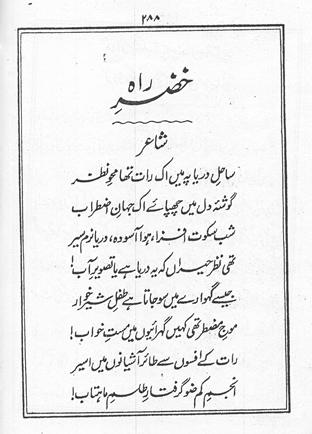 ۲۸۸
خضرِ راہ
شاعر
ساحلِ دریا پہ میں اک رات تھا محوِ نظر
گوشۂ دل میں چھپائے اک جہانِ اضطراب
شب سکوت افزا، ہوا آسودہ، دریا نرم سیر
تھی نظر حیراں کہ یہ دریا ہے یا تصویرِ آب!
جیسے گہوارے میں سو جاتا ہے طفلِ شیر خوار
موجِ مضطر تھی کہیں گہرائیوں میں مستِ خواب!
رات کے افسوں سے طائر آشیانوں میں اسیر
انجمِ کم ضو گرفتارِ طلسمِ ماہتاب!